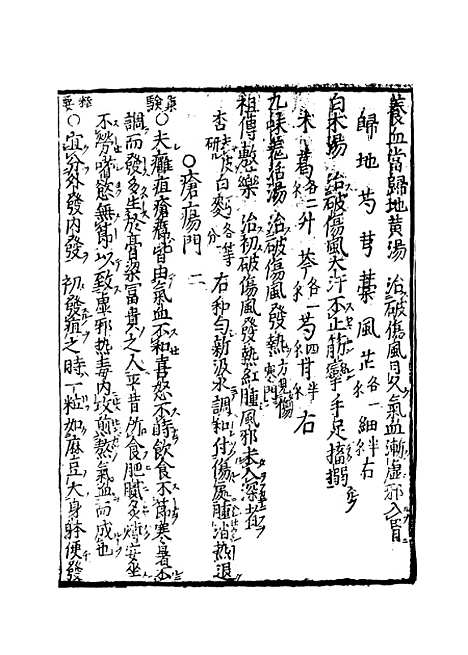 養血當歸地黄湯 治破傷風日久氣血漸虚邪入胃
歸 地 芍 芎 藁 風 芷各一 細半 右
白朮湯 治破傷風大汗不止筋攣手足搐搦
朮 葛各二 升 芩各一 芍四 甘半 右
九味羗活湯 治破傷風發熱方見傷寒門
祖傳敷藥 治初破傷風發熱紅腫風邪未入深者
杏研去皮 白麪各等分 右和勻新汲水調和付傷處腫消熱退
〇瘡瘍門 二
集驗〇夫癰疽瘡癤皆由氣血不和喜怒不時飲食不節寒暑不
調而發多生於膏粱冨貴之人平昔所食肥膩多炙安坐
不勞嗜慾無節以致虚邪熱毒内攻煎熬氣血而成也
粹要〇宜分外發内發 初發疽之時一粒如麻豆大身躰便發